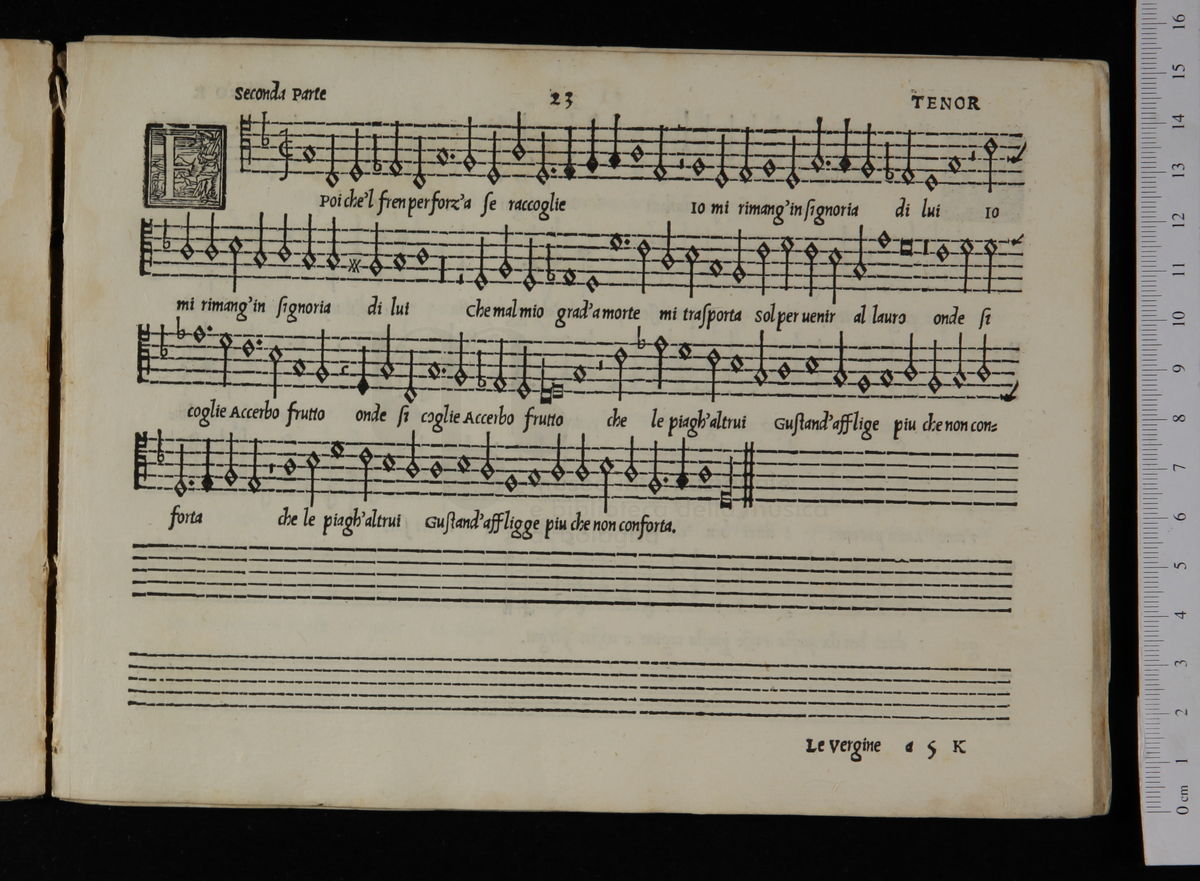 Seconda Parte 23 TENOR
Poi che'l fren per forz'a se raccoglie Io mi rimang'in signoria di lui Io
mi rimang'in signoria di lui Che mal mio grad'a morte mi trasporta Sol per uenir al lauro onde si
coglie Accerbo frutto onde si coglie Accerbo frutto che le piagh'altrui Gustand'afflige piu che non con=
forta che le piagh'altrui Gustand'affligge piu che non conforta.
e biblioteca della musica
Le Vergine a 5 K
16
15
14
13
12
11
10
9
8
7
6
5
4
3
2
1
0 cm